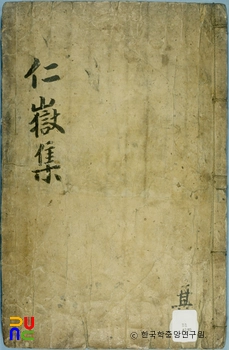 仁嶽集
其
ⓒ 한국학중앙연구원